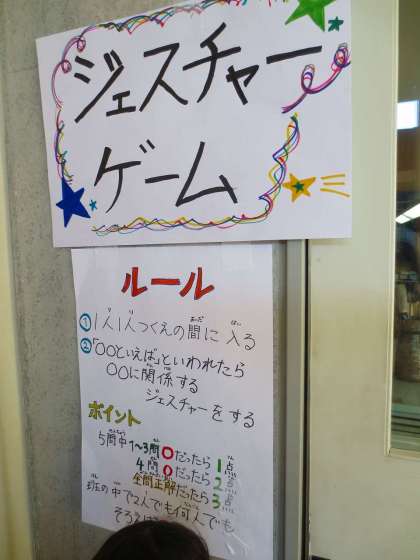 ジェスチャー
ゲーム
ルール
①1人1人つくえの間に入る
②「〇〇といえば」といわれたら
〇〇に関係する
ジェスチャーをする
ポイント
5問中1~3問〇だったら1点
4問〇だったら2点
全問正解だったら3点
班の中で2人でも何人でも
そろえば